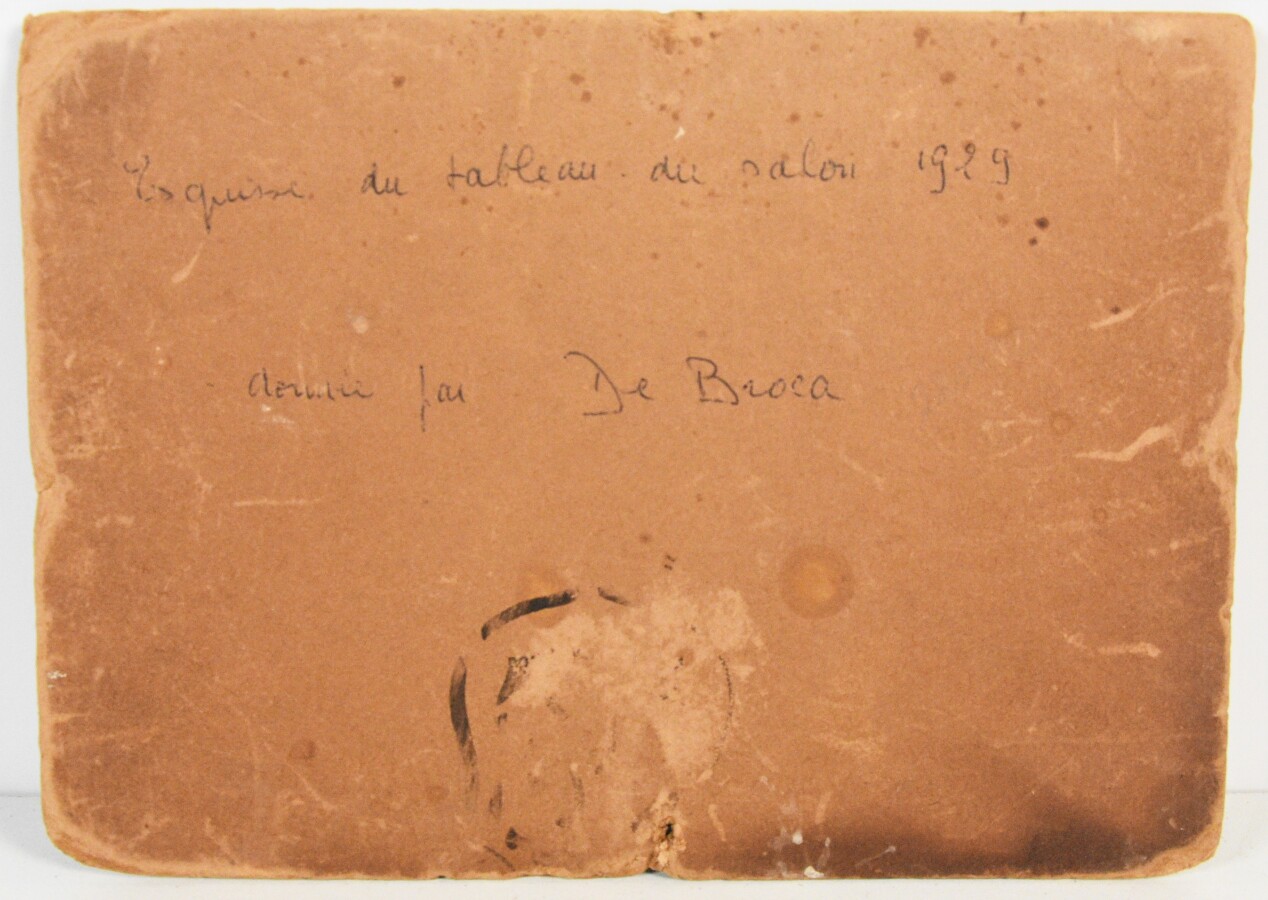 Esquisse du tableau du salon 1929
donnée par De Broca